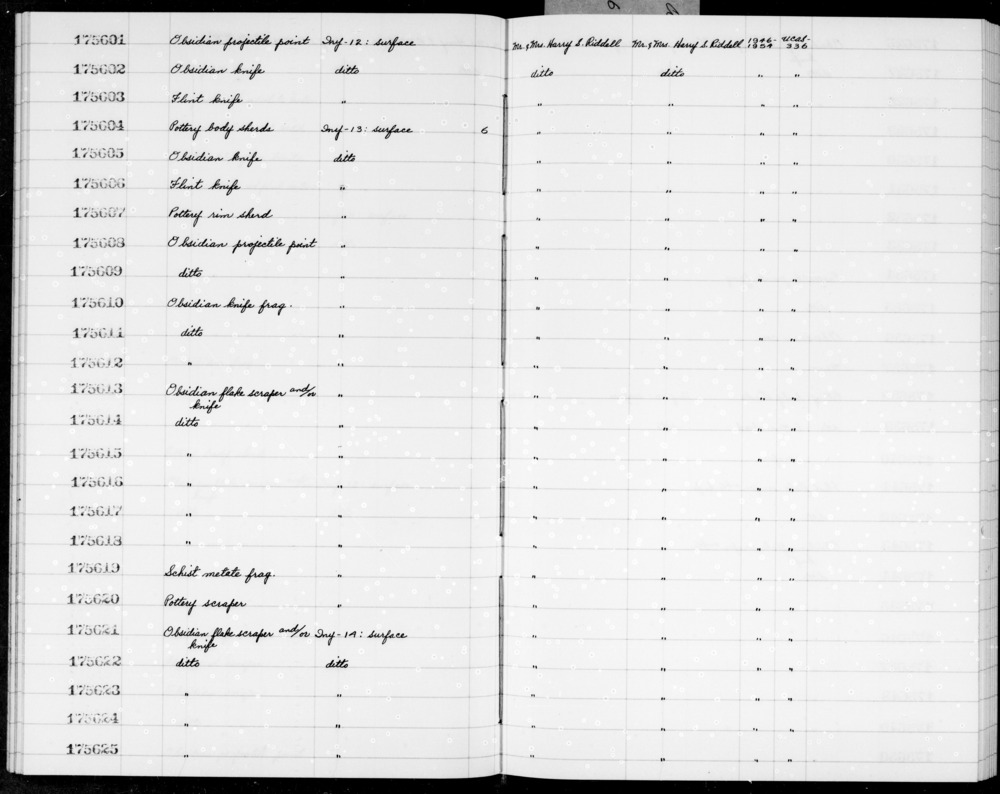 175601 Obsidian projectile point Iny-12: surface Mr. & Mrs. Harry S. Riddell Mr. & Mrs. Harry S. Riddell 1946-1954 UCAS-336
175602 Obsidian knife ditto ditto ditto " "
175603 Flint knife " " " " "
175604 Pottery body sherds Iny-13: surface 6 " " " "
175605 Obsidian knife ditto " " " "
175606 Flint knife " " " " "
175607 Pottery rim sherd " " " " "
175608 Obsidian projectile point " " " " "
175609 ditto " " " " "
175610 Obsidian knife frag. " " " " "
175611 ditto " " " " "
175612 " " " " " "
175613 Obsidian flake scraper and/or " " " " "
knife
175614 ditto " " " " "
175615 " " " " " "
175616 " " " " " "
175617 " " " " " "
175618 " " " " " "
175619 Schist metate frag. " " " " "
175620 Pottery scraper " " " " "
175621 Obsidian flake scraper and/or Iny-14: surface " " " "
knife
175622 ditto ditto " " " "
175623 " " " " " "
175624 " " " " " "
175625 " " " " " "